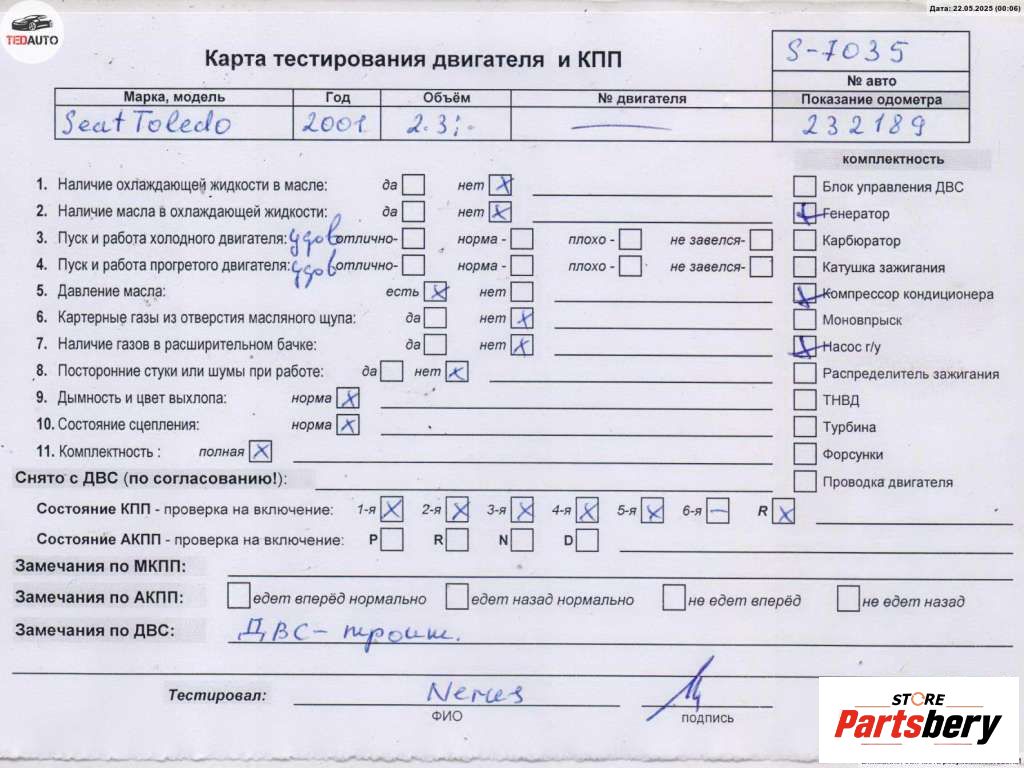 Дата: 22.05.2025 (00:06)
TEDAUTO
Карта тестирования двигателя и КПП
S-7035
№ авто
Марка, модель Год Объём № двигателя Показание одометра
Seat Toledo 2001 2.3i - — 232189
комплектность
1. Наличие охлаждающей жидкости в масле: да нет X
Блок управления ДВС
2. Наличие масла в охлаждающей жидкости: да нет X
X Генератор
3. Пуск и работа холодного двигателя: удов отлично- норма - плохо - не завелся-
Карбюратор
4. Пуск и работа прогретого двигателя: удов отлично- норма - плохо - не завелся-
Катушка зажигания
5. Давление масла: есть X нет
X Компрессор кондиционера
6. Картерные газы из отверстия масляного щупа: да нет X
Моновпрыск
7. Наличие газов в расширительном бачке: да нет X
X Насос г/у
8. Посторонние стуки или шумы при работе: да нет X
Распределитель зажигания
9. Дымность и цвет выхлопа: норма X
ТНВД
10. Состояние сцепления: норма X
Турбина
11. Комплектность : полная X
Форсунки
Снято с ДВС (по согласованию!):
Проводка двигателя
Состояние КПП - проверка на включение: 1-я X 2-я X 3-я X 4-я X 5-я X 6-я — R X
Состояние АКПП - проверка на включение: P R N D
Замечания по МКПП:
Замечания по АКПП: едет вперёд нормально едет назад нормально не едет вперёд не едет назад
Замечания по ДВС: ДВС - троит.
Тестировал:
ФИО подпись
STORE
Partsbery